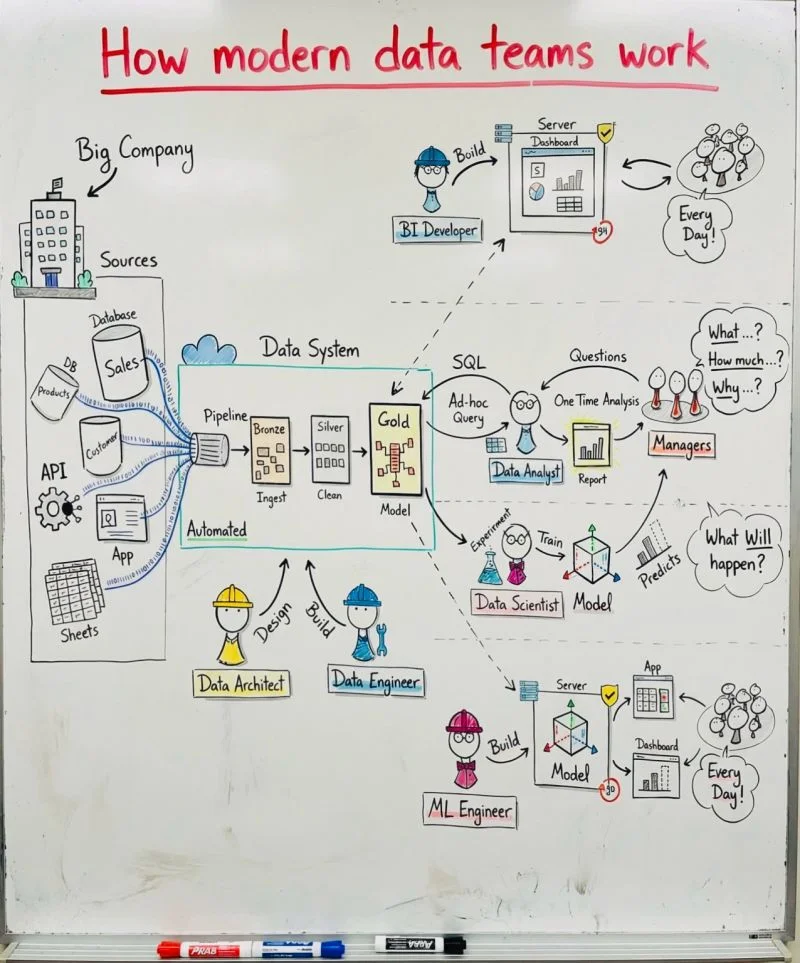 How modern data teams work
Big Company
Sources
Database
Sales
DB
Products
Customer
API
App
Sheets
Data System
Pipeline
Bronze
Ingest
Silver
Clean
Gold
Model
Automated
Data Architect
Design
Build
Data Engineer
BI Developer
Build
Server
Dashboard
S
Every
Day!
SQL
Ad-hoc
Query
Data Analyst
Questions
One Time Analysis
Report
Managers
What...?
How much...?
Why...?
Experiment
Data Scientist
Train
Model
Predicts
What Will
happen?
ML Engineer
Build
Server
Model
App
Dashboard
Every
Day!